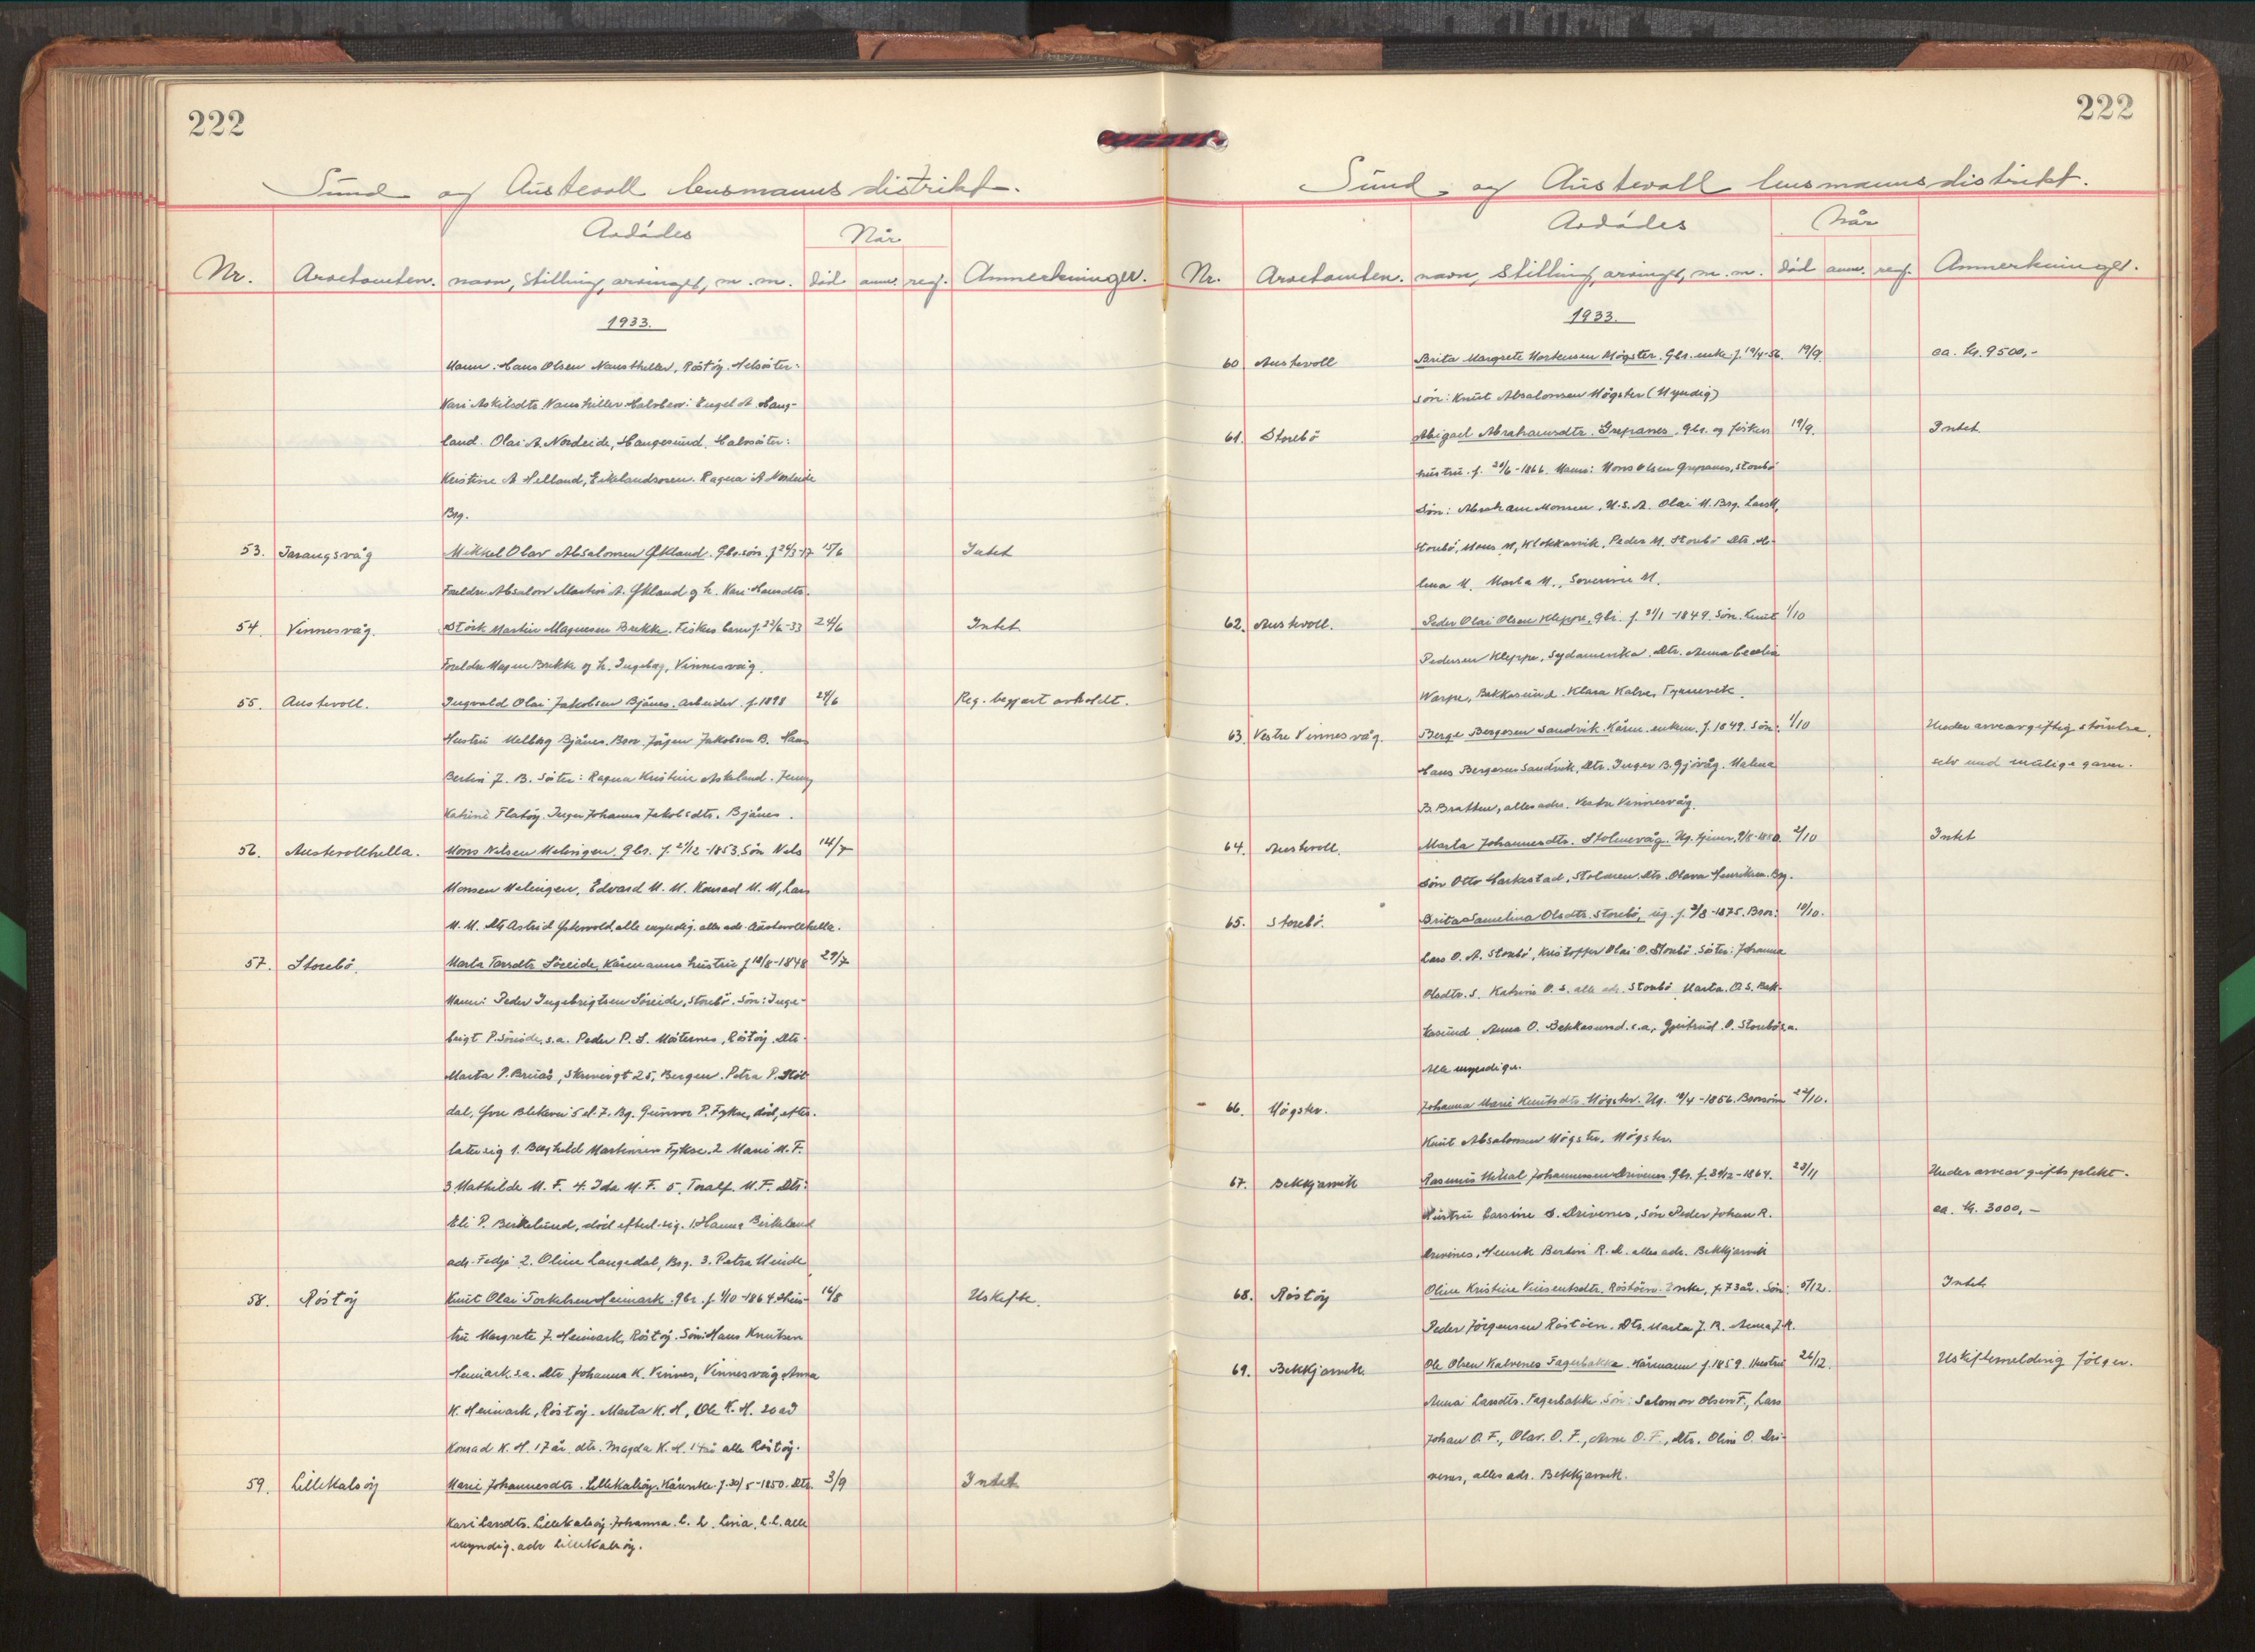 222
Sund og Austevoll lensmannsdistrikt.
Avdødes
Når
Nr. Avretomten. navn, stilling, arvinger, m. m. død anm. reg. Anmerkninger.
1933.
Mann: Hans Olsen Naustheller, Röstöy. Helsöster:
Kari Askilsdtr. Naustheller Halvbror: Engel A. Haug-
land. Olai A. Nordeide, Haugesund. Halvsöster:
Kristine A. Helland, Eikelandsosen. Ragna A. Nordeide
Brg.
53. Jarangsvåg Mikkel Olav Absalonsen Økland. Gbr.sön. f 24/3-17 15/6 Intet
Foreldre Absalon Martin A. Økland og h. Kari Hansdtr.
54. Vinnesvåg. Martin Magnesen Bukke. Fiskers barn f. 22/6-33 24/6 Intet
Foreldre Magne Bukke og h. Ingeborg, Vinnesvåg.
55. Austevoll. Ingvald Olai Jakobsen Bjånes. Arbeider. f. 1898 24/6 Reg. begjært avholdt.
Hustru Melborg Bjånes. Bror Jörgen Jakobsen B. Hans
Bertin J. B. Söster: Ragna Kristine Askeland. Jenny
Katrine Flatöy. Inger Johanna Jakobsdtr. Bjånes.
56. Austevollhella. Mons Nilsen Melingen. gbr. f. 2/12-1853. Sön Nils 14/7
Monsen Melingen, Edvard M. M. Konrad M. M, Lars
M. M. dtr Astrid Östervold, alle myndig. alles adr. Austevollhella.
57. Storebö. Marta Larsdtr. Söreide, Kårmanns hustru f 18/8-1848 29/7
Mann: Peder Ingebrigtsen Söreide, Storebö. Sön: Inge-
brigt P. Söreide, s.a. Peder P. S. Mösternes, Röstöy. Dtr.
Marta P. Bruås, Skrivergt 25, Bergen. Petra P.
dal, Øvre Blekevei 5 d. 7. Bg. Gunvor P. Tykse, död, efter-
later sig 1. Borghild Martinsen Tykse. 2 Marie M. T.
3. Mathilde M. T. 4. Ida M. T. 5. Toralf. M. T. Dtr:
Eli P. Birkelund, död efterl. sig. 1. Hanna Birkeland
adr. Fedje 2. Oline Langedal, Brg. 3. Petra Hinde
58. Röstöy Knut Olai Torkelsen Heimark. gbr. f. 1/10-1864. Hus- 16/8 Uskifte.
tru Margrete J. Heimark, Röstöy. Sön: Hans Knutsen
Heimark s.a. dtr. Johanna K. Vinnes, Vinnesvåg Anna
K. Heimark, Röstöy. Marta K. H, Ole K. H. 20 år
Konrad K. H. 17 år. dtr. Magda K. H. 14 år alle Röstöy.
59. Lillekalsöy Marie Johannesdtr. Lillekalsöy. Kårenke. f. 30/5-1850. Dtr. 3/9 Intet
Kari Larsdtr. Lillekalsöy. Johanna. L. L. Lina. L. L. alle
myndig. adr Lillekalsöy.
222
Sund og Austevoll lensmannsdistrikt.
Avdødes
Når
Nr. Avretomten. navn, stilling, arvinger, m. m. død anm. reg. Anmerkninger.
1933.
60 Austevoll Brita Margrete Mortensen Högster. Gbr. enke. f. 19/4-56. 19/9. ca. kr. 9500,-
sön: Knut Absalonsen Högster (Myndig)
61. Storebö Abigael Abrahamsdtr. Grepanes. gbr. og fiskers 19/9. Intet
hustru. f. 20/6-1866. Mann: Mons Olsen Grepanes, Storebö
Sön: Abraham Monsen, U.S.A. Olai M. Brg. Lars M,
Storebö, Mons M, Klokkarvik. Peder M. Storebö Dtr. A-
lina M. Marta M., Severine M.
62. Austevoll. Peder Olai Olsen Kleppe. gbr. f. 31/1-1849. Sön. Knut 1/10
Pedersen Kleppe, Sydamerika. Dtr. Anna Cecelia
Warpe, Bakkasund. Klara Kalve, Tysnevik.
63. Vestre Vinnesvåg. Berge Bergesen Sandvik. Kårm. enkem. f. 1849. Sön: 1/10 Under arveavgiftig störrelse,
Hans Bergesen Sandvik, Dtr. Inger B. Gjövåg. Malena selv med mulige gaver.
B. Bratten, alles adr. Vestre Vinnesvåg.
64. Austevoll. Marta Johannesdtr. Stolmevåg. Ug. tjener. 9/8-1880. 2/10 Intet
Sön Otto Harkestad, Stolmen. Dtr. Olava Henriksen. Brg.
65. Storebö. Brita Samelina Olsdtr. Storebö, ug. f. 3/8-1875. Bror: 10/10.
Lars O. A. Storebö, Kristoffer Olai O. Storebö. Söster: Johanna
Olsdtr. S. Katrine O. S. alle adr. Storebö. Marta. O. S. Bak-
kasund. Anna O. Bakkasund. s.a., Gjertrud. O. Storebö s.a.
Alle myndige.
66. Högster. Johanna Marie Knutsdtr. Högster. Ug. 10/4-1856. Brorsön 22/10.
Knut Absalonsen Högster. Högster.
67. Bekkjarvik Rasmus Mikal Johannessen Drivenes. gbr. f. 29/12-1864. 23/11 Under arveavgiftsplikt.
Hustru Larsine S. Drivenes, Sön Peder Johan R. ca. kr. 3000,-
Drivenes, Henrik Bertin R. D. alles adr. Bekkjarvik
68. Röstöy Oline Kristine Vinsentsdtr. Röstöen. Enke, f. 73 år. Sön: 5/12. Intet
Peder Jörgensen Röstöen. Dtr. Marta J. R. Anna J. R.
69. Bekkjarvik. Ole Olsen Kalvenes Fagerbakke. Kårmann f. 1859. Hustru 26/12. Uskiftemelding fölger.
Anna Larsdtr. Fagerbakke. Sön: Salomon Olsen F., Lars
Johan O. F., Olav. O. F., Arne O. F., dtr. Oline O. Dri-
venes, alles adr. Bekkjarvik.